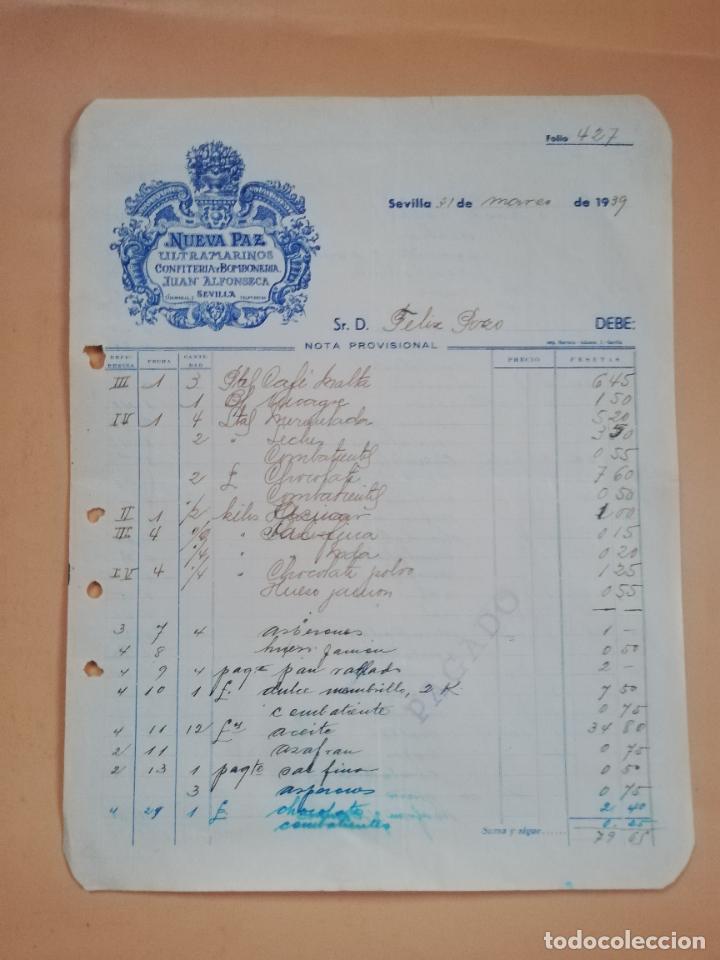 Folio 427
Sevilla 31 de marzo de 1939
NUEVA PAZ
ULTRAMARINOS
CONFITERIA Y BOMBONERIA
JUAN ALFONSECA
SEVILLA
Sr. D. Felix Pozo DEBE:
NOTA PROVISIONAL
REFERENCIA FECHA CANTIDAD PRECIO PESETAS
III 1 3 Café Malta 6 45
1 1 50
IV 1 4 5 20
2 " Leche 3 50
Combatientes 0 55
2 £ Chocolate 7 60
Combatientes 0 50
II 1 1/2 kilos Azucar 1 00
III 4 " Sal fina 0 15
1/4 " 0 20
IV 4 1/4 " Chocolate polvo 1 25
Hueso jamon 0 55
3 7 4 asperones 1 -
4 8 hueso jamón 0 50
4 9 4 paqte pan rallado 2 -
4 10 1 £. dulce membrillo, 2 K. 7 50
combatiente 0 75
4 11 12 aceite 34 80
2 11 azafran 0 75
2 13 1 paqte sal fina 0 50
3 asperones 0 75
4 29 1 £ chocolate 2 40
combatientes 0.25
Suma y sigue..... 79 65
PAGADO
todocoleccion
todocoleccion.net